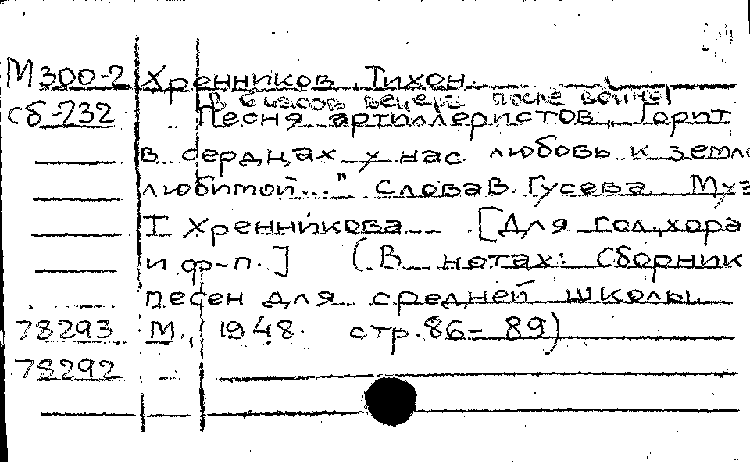 М300-2 Хренников Тихон.
В 6 часов вечера после войны
сб-232 Песня артиллеристов. „Горит
в сердцах у нас любовь к земле
любимой..." Слова В. Гусева. Муз
Т Хренникова [Для гол., хора
и ф-п.] (В нотах: Сборник
песен для средней школы.
78293 М., 1948. стр. 86-89)
78292